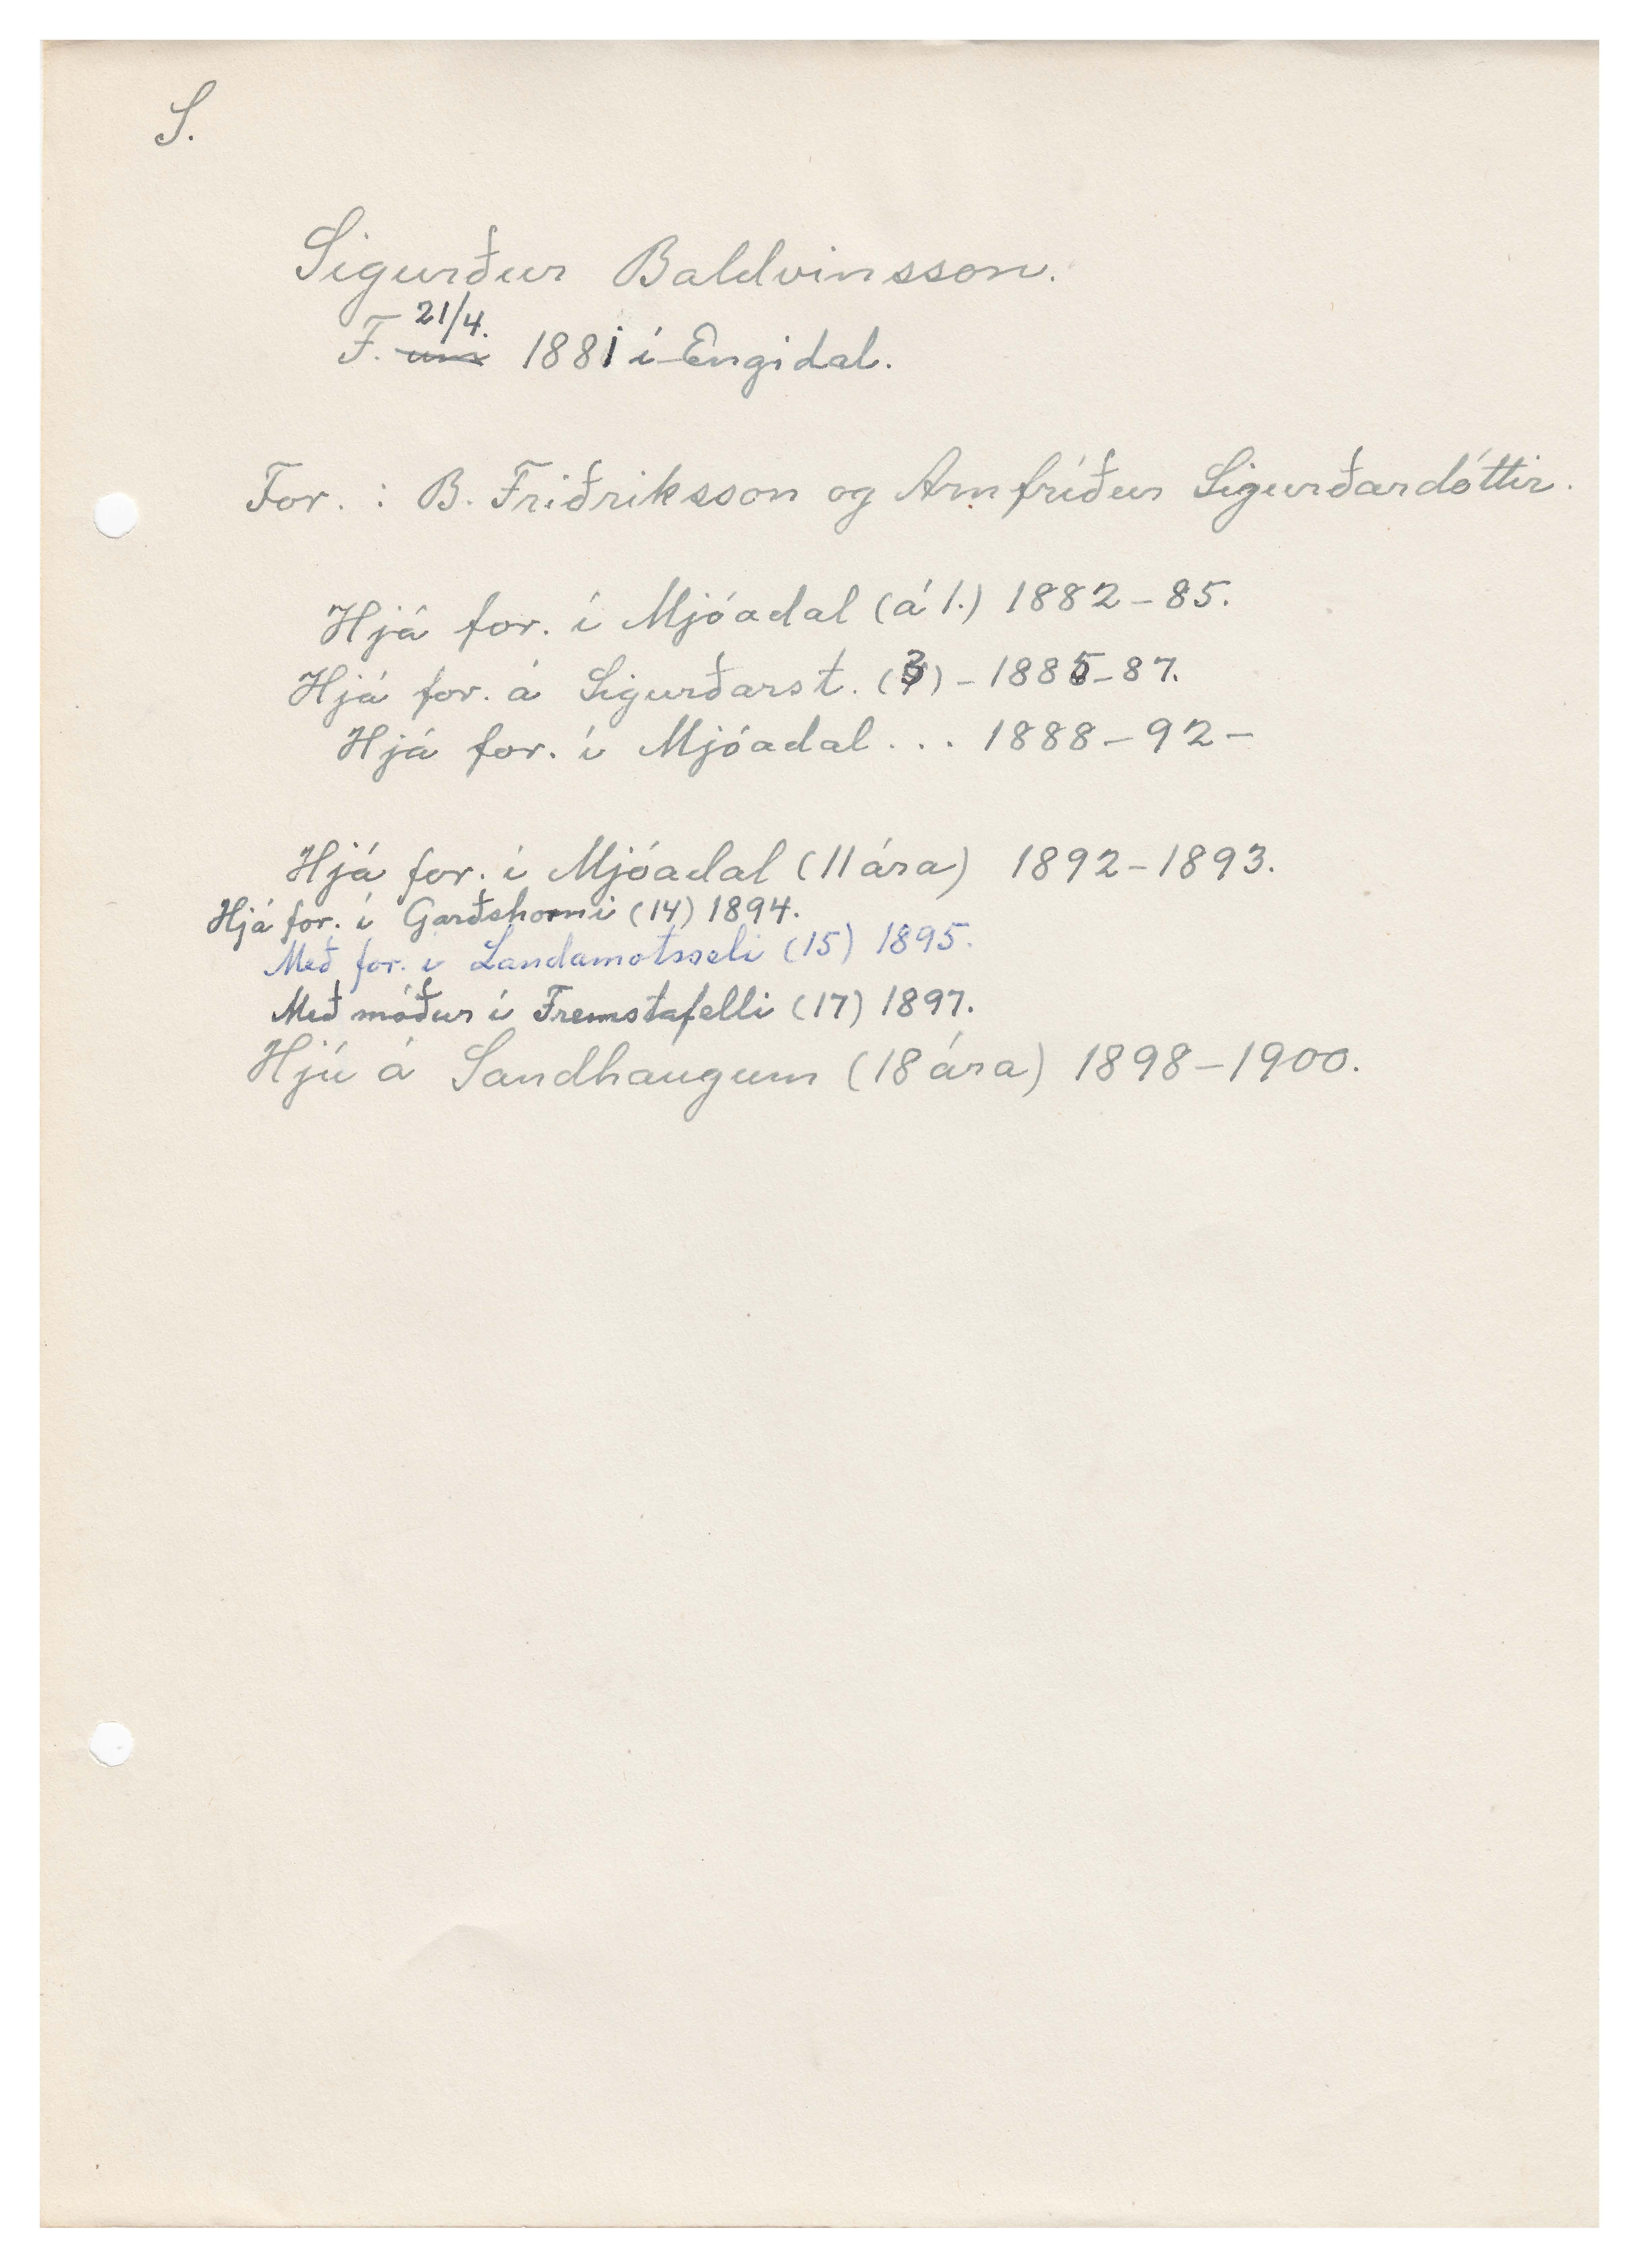 S.
Sigurður Baldvinsson.
21/4.
F. um 1881 í Engidal.
For. : B. Friðriksson og Arnfríður Sigurðardóttir.
Hjá for. í Mjóadal (á 1.) 1882-85.
Hjá for. á Sigurðarst. (3) - 1885-87.
Hjá for. í Mjóadal ... 1888-92-
Hjá for. í Mjóadal (11 ára) 1892-1893.
Hjá for. í Garðshorni (14) 1894.
Með for. í Landamotsseli (15) 1895.
Með móður í Fremstafelli (17) 1897.
Hjú á Sandhaugum (18 ára) 1898-1900.